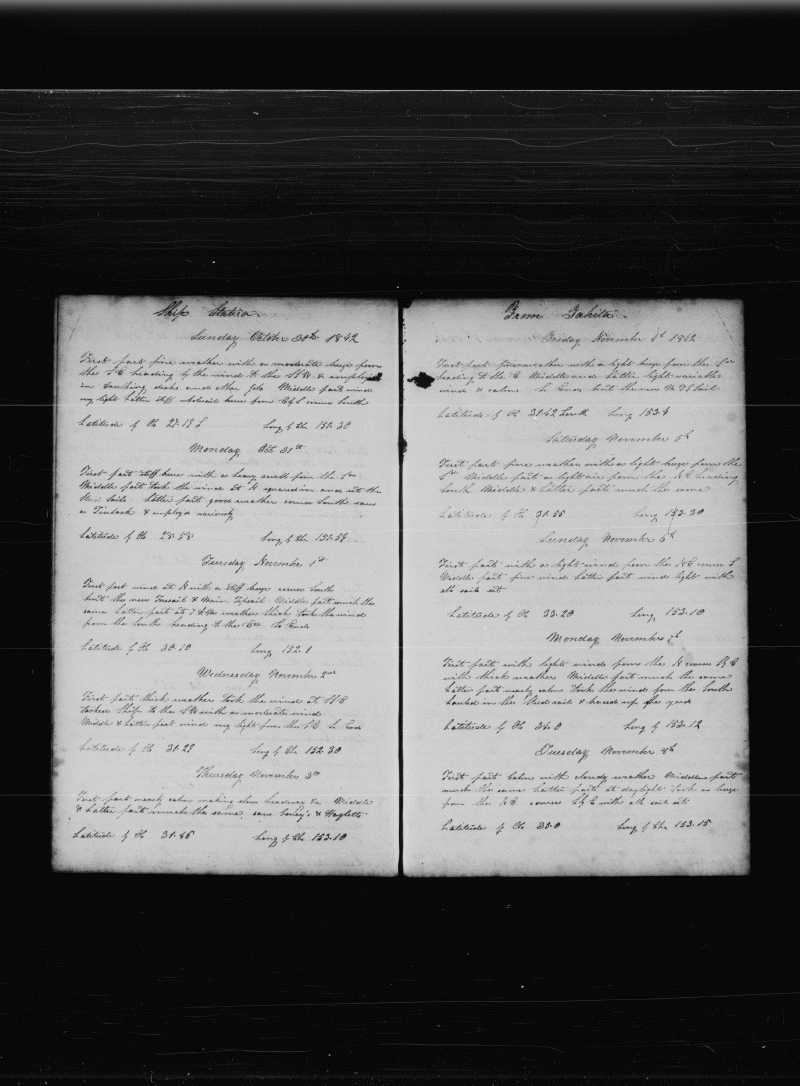 Ship Statira.
Sunday October 30th 1842
First part fine weather with a moderate breeze from
the S E heading by the wind to the S W & employed
in scrubing decks and other jobs Middle part wind
very light Latter stiff wholesail breeze from E of S course South
Latitude by Ob 27.19 S Long by Chr 151.30
Monday Oct 31st
First part stiff breeze with a heavy swell from the Sou
Middle part took the wind at N squared in and set the
Stud Sails Latter part good weather course South saw
a Finback & employd variously
Latitude by Ob 28.58 Long by Chr 151.59
Tuesday November 1st
First part wind at N with a stiff breeze course South
bent the new Foresail & Main Topsail Middle part much the
same Latter part at 7 A M weather thick took the wind
from the South heading to the E So Ends
Latitude by Ob 30.10 Long 152.1
Wednesday November 2nd
First part thick weather took the wind at S E
tacked Ship to the S W with a moderate wind
Middle & Latter part wind very light from the S E So Ends
Latitude by Ob 31.29 Long by Chr 152.30
Thursday November 3rd
First part nearly calm making slow headway Middle
& Latter part much the same, saw &
Latitude by Ob 31.46 Long by Chr 153.10
From Tahita.
Friday November 4th 1842
First part fine weather with a light breeze from the Sou
heading to the E Middle and Latter light variable
wind & calms So Ends bent the new M T G Sail
Latitude by Ob 31.42 South Long 153.4
Saturday November 5th
First part fine weather with a light breeze from the
Sou Middle part a light air from the N E heading
South Middle & Latter parts much the same
Latitude by Ob 31.55 Long 153.30
Sunday November 6th
First part with a light wind from the N E course S
Middle part fine wind Latter part wind light with
all sail set
Latitude by Ob 33.20 Long 153.10
Monday November 7th
First part with light winds from the N course S by E
with thick weather Middle part much the same
Latter part nearly calm took the wind from the South
hauled in the Stud sails & braced up the yards
Latitude by Ob 34.0 Long by 153.12
Tuesday November 8th
First part Calm with cloudy weather Middle part
much the same Latter part at daylight took a breeze
from the N E course S by E with all sail set
Latitude by Ob 35.0 Long by Chr 153.15